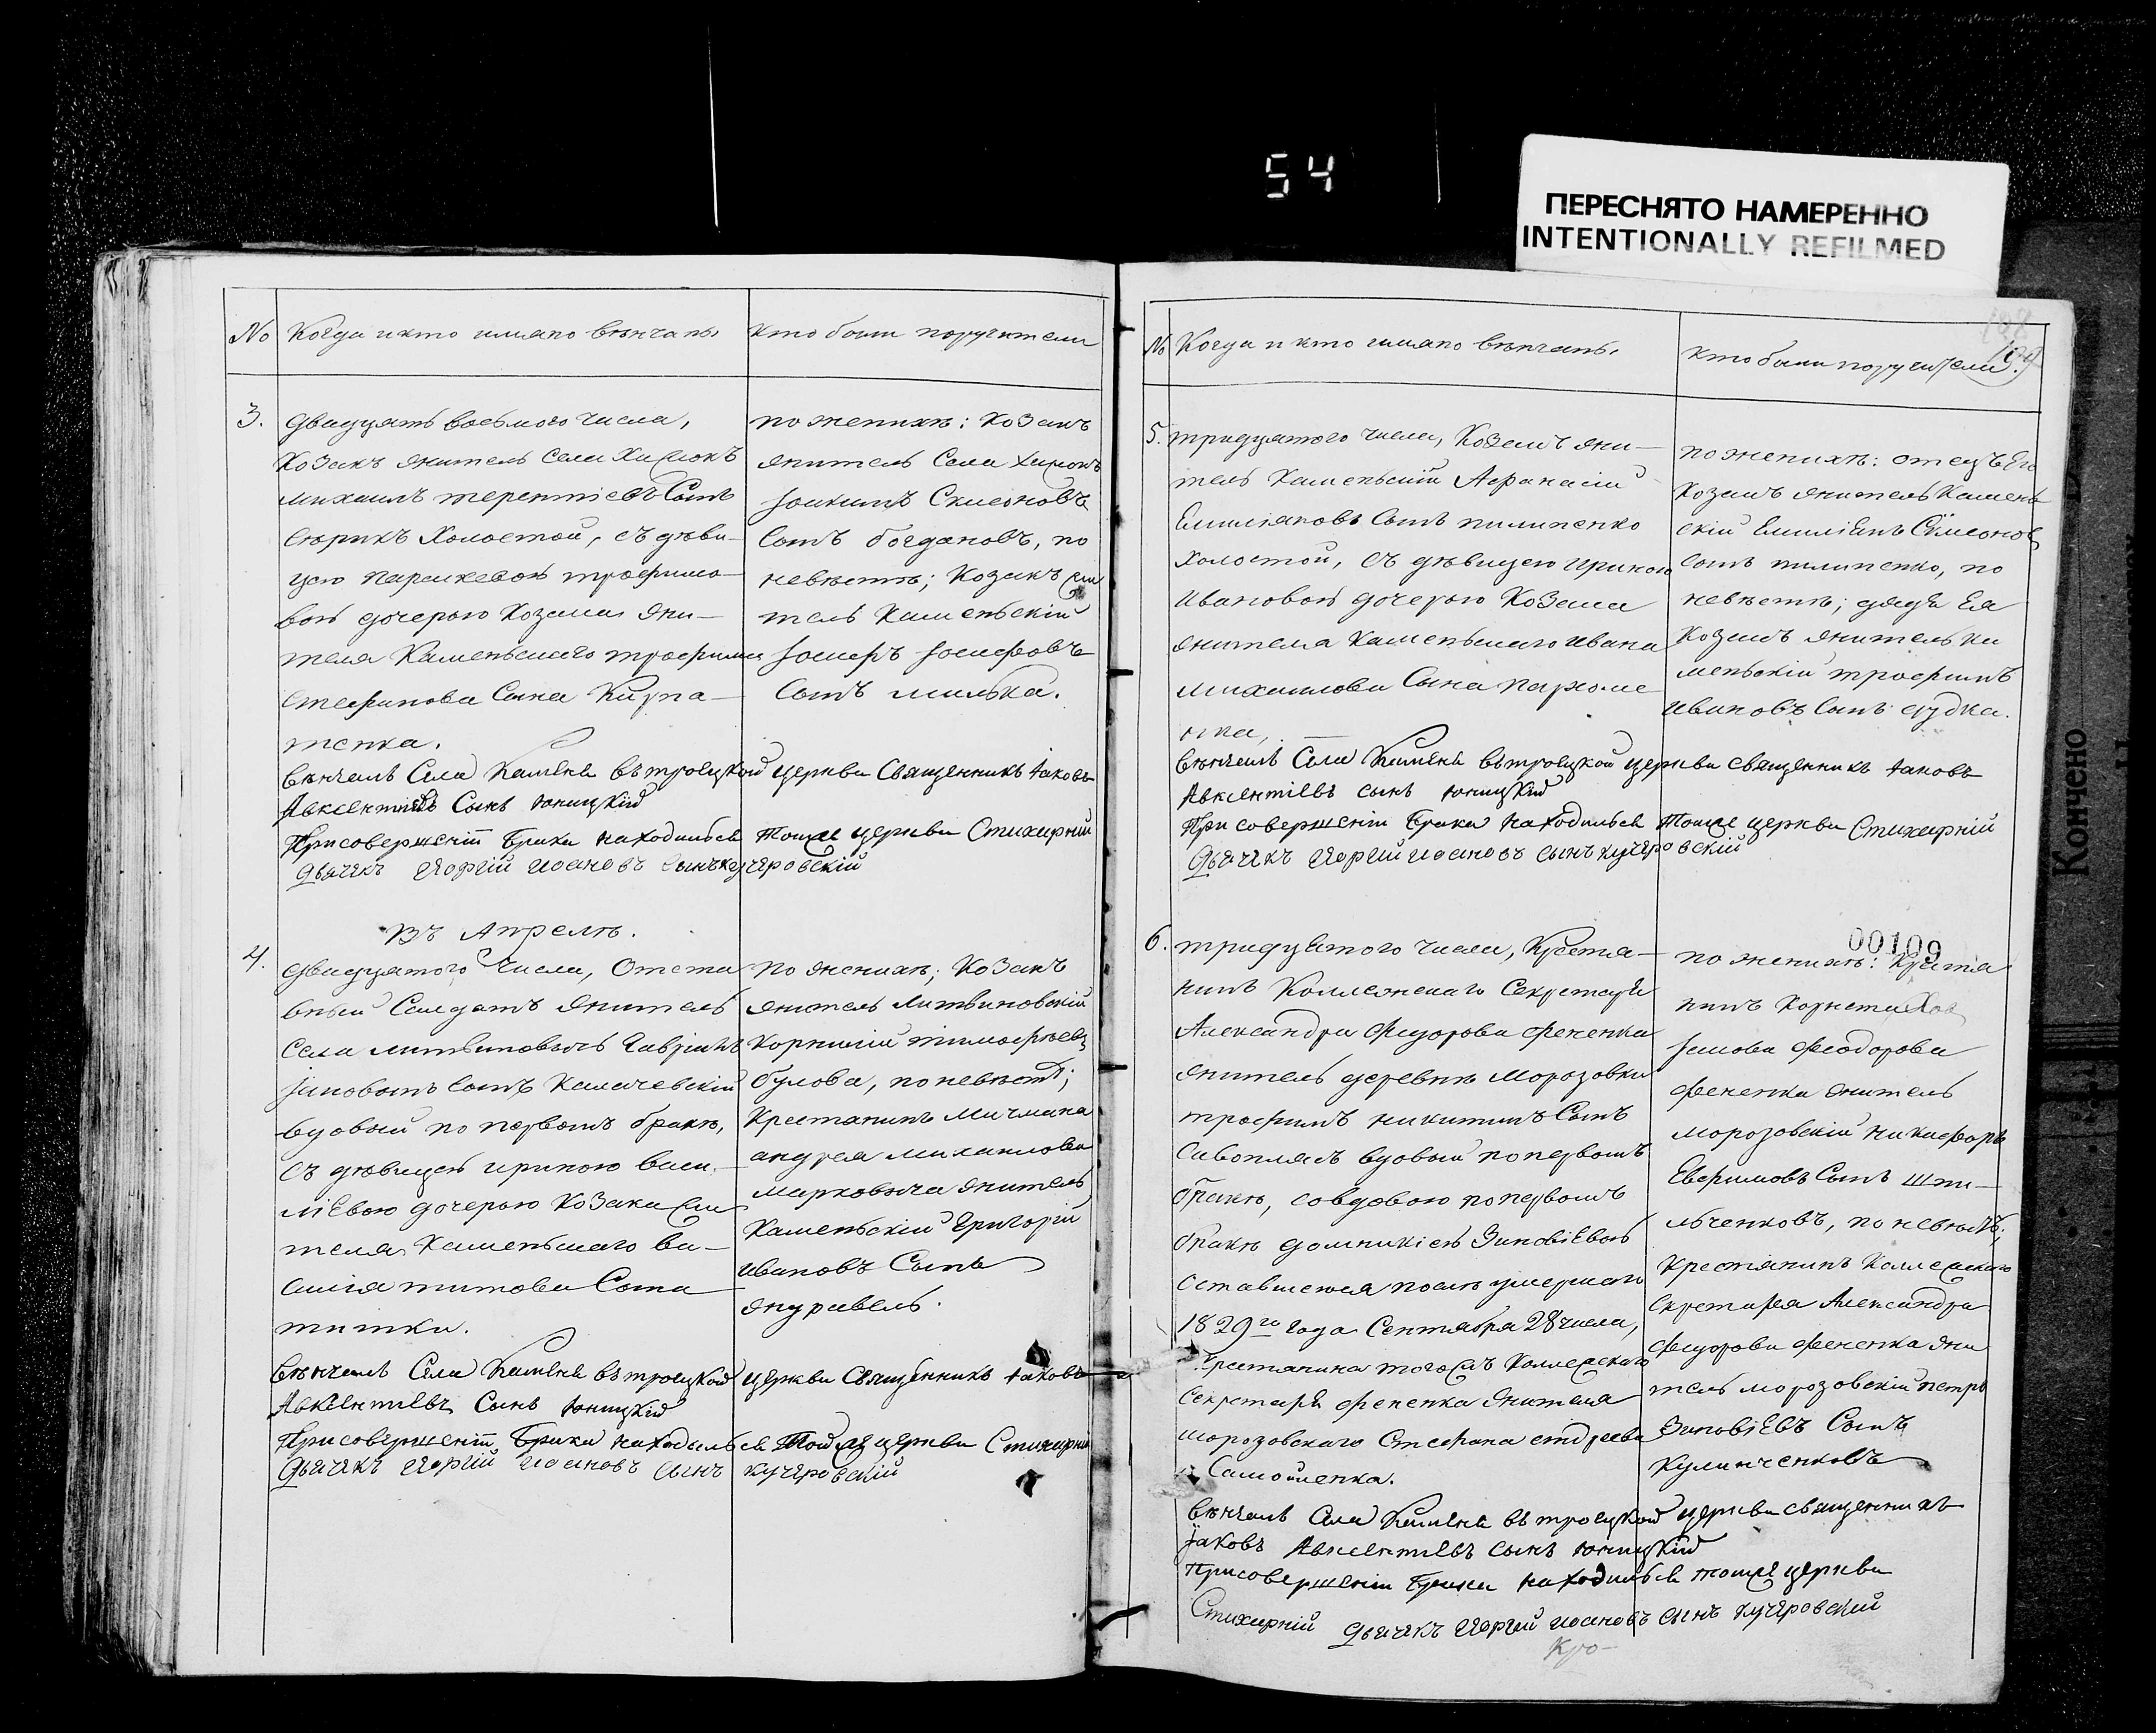 54
ПЕРЕСНЯТО НАМЕРЕННО
INTENTIONALLY REFILMED
No Когда и кто имяно венчаны кто были поручители
3. двадцать восьмого числа,
Козакъ житель села
михаилъ терентіевъ Сынъ
холостой, съ деви-
цею параскевою трофимо-
вою дочерью Козака жи-
теля Каменьскаго трофима
стефанова Сына Кирпа-
тенка.
по женихе: Козакъ
житель Села
Іоакимъ Симеоновъ
Сынъ богдановъ, по
невесте; Козакъ жи
тель Каменьскій
Іосифъ Іосифовъ
Сынъ милька.
Венчалъ Села Каменя въ троецкой церкви Священникъ Іаковъ
Авксентіевъ Сынъ Юницкій
При совершеніи Брака находился тоиже церкви Стихирній
Дьячекъ Георгій Иоановъ Сынъ Кучеровскій
Въ Апреле.
4. двадцятого Числа, Отста
вный Солдатъ житель
Села литвиновычъ Гавріилъ
Сынъ Калачевскій
вдовый по первомъ браке,
съ девицей ириною васи-
ліевою дочерью Козака жи
теля Каменьскаго ва-
силія титова Сына
титки.
по женихе; Козакъ
житель Литвиновскій
Корнилій тимофеевъ
булова, по невесте;
Крестянинъ Мичмана
андрея михаилова
марковыча житель
Каменьскій Григорій
ивановъ Сынъ
журавель.
Венчалъ Села Каменя въ троецкой церкви Священникъ Іаковъ
Авксентіевъ Сынъ Юницкій
При совершеніи Брака находился Тоиже церкви Стихирній
Дьячекъ Георгій Иоановъ Сынъ Кучеровскій
109
No Когда и кто имяно венчаны. кто были поручители.
5. тридцятого числа, Козакъ жи-
тель Каменьскій Афанасій
Емиліяновъ Сынъ пилипенко
холостой, съ девицею ириною
ивановою дочерью Козака
жителя Каменьскаго ивана
михаилова Сына пархоме
нка,
по женихе: отецъ Его
Козакъ житель Камень
скій Емиліянъ Симеонов
Сынъ пилипенко, по
невесте; дядя Ея
Козакъ житель Ка
меньскій трофимъ
ивановъ Сынъ дудка.
Венчалъ Села Каменя въ троецкой церкви священникъ Іаковъ
Авксентіевъ сынъ Юницкій
При совершеніи Брака находился Тоиже церкви Стихирній
Дьячекъ Георгій Иоановъ Сынъ Кучеровскій
00109
6. тридцятого числа, Крестя-
нинъ Коллежскаго Секретаря
Александра Федорова Фененка
житель деревне Морозовки
трофимъ никитинъ Сынъ
Савоплясъ вдовый по первомъ
браке, со вдовою по первомъ
браке домникіею Зиновіевою
оставшеюся после умершаго
1829го года Сентября 28 числа,
Крестянина того жъ Коллежскаго
Секретаря Фененка жителя
морозовскаго Стефана
Самойленка.
по женихе: Крестя
нинъ Корнета
Іакова Феодорова
Фененка житель
морозовскій никифоръ
Евфимовъ Сынъ Шпи-
льченковъ, по невесте;
Крестянинъ Коллежскаго
Секретаря Александра
Федорова Фененка жи
тель морозовскій петръ
Зиновіевъ Сынъ
Кулинченковъ
Венчалъ Села Каменя въ троецкой церкви священникъ
Іаковъ Авксентіевъ сынъ Юницкій
При совершеніи Брака находился тоиже церкви
Стихирній Дьячекъ Георгій Иоановъ Сынъ Кучеровскій
Кончено